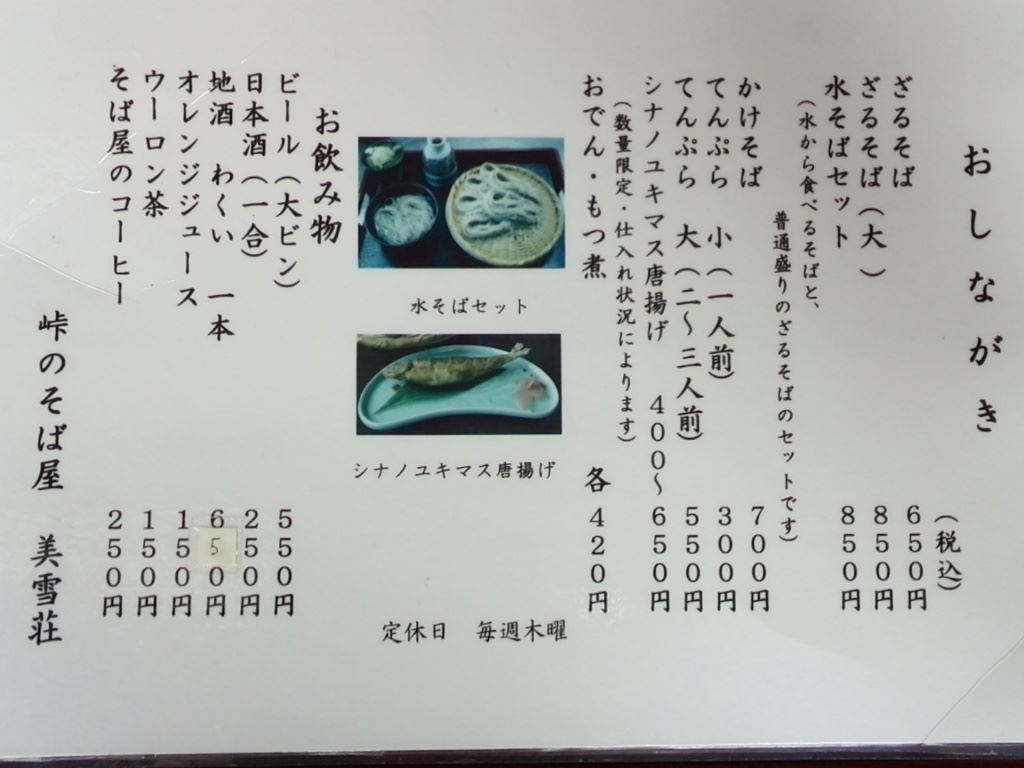 おしながき
(税込)
ざるそば 650円
ざるそば(大) 850円
水そばセット 850円
(水から食べるそばと、
普通盛りのざるそばのセットです)
かけそば 700円
てんぷら 小(一人前) 300円
てんぷら 大(二〜三人前) 550円
シナノユキマス唐揚げ 400〜650円
(数量限定・仕入れ状況によります)
おでん・もつ煮 各420円
水そばセット
シナノユキマス唐揚げ
定休日 毎週木曜
お飲み物
ビール(大ビン) 550円
日本酒(一合) 250円
地酒 わくい 一本 650円
オレンジジュース 150円
ウーロン茶 150円
そば屋のコーヒー 250円
峠のそば屋 美雪荘